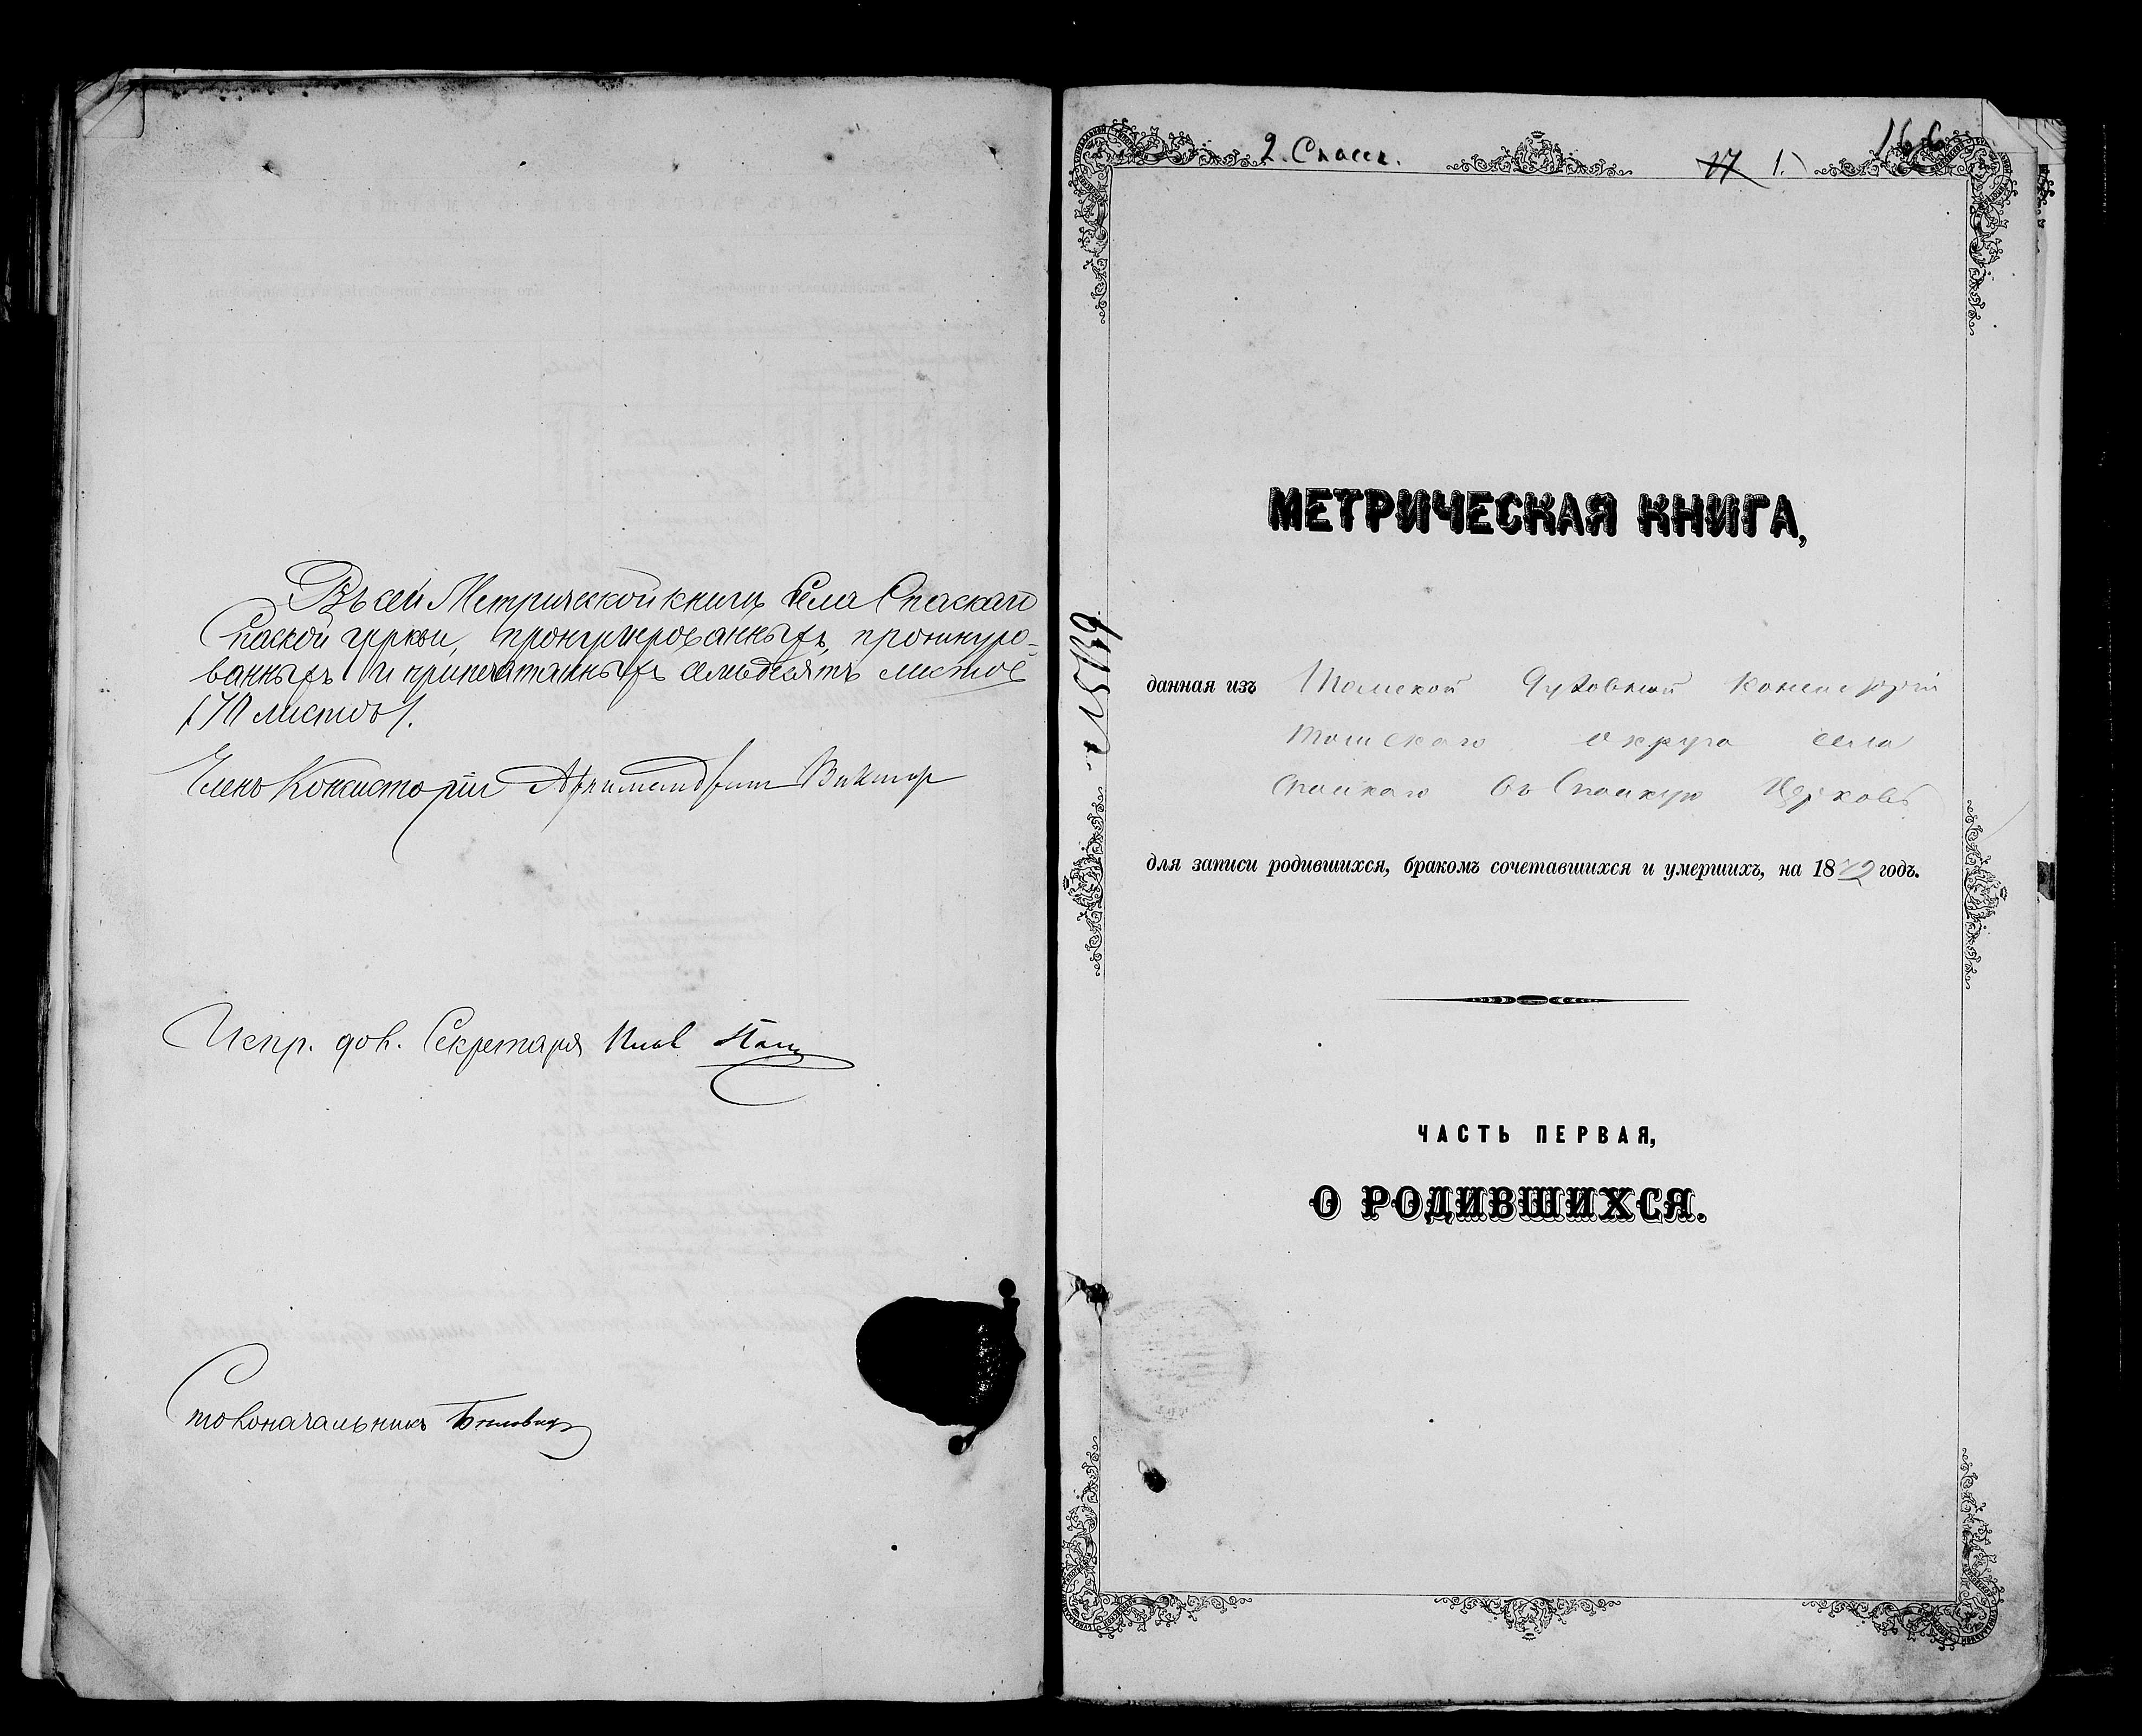 Въ сей Метрической книгѣ Села Спаскаго
Спаской церкви, пронумерованныхъ, прошнуро-
ванныхъ и припечатанныхъ семьдесятъ листовъ
/70 листовъ/.
Членъ Консисторіи Архимандритъ Викторъ
Испр. дол. Секретаря
Столоначальникъ
2. Спасск.
17 1.)
166
МЕТРИЧЕСКАЯ КНИГА,
данная изъ Томской Духовной Консисторіи
Томскаго округа села
Спаскаго въ Спаскую Церковь
для записи родившихся, бракомъ сочетавшихся и умершихъ, на 1872 годъ.
ЧАСТЬ ПЕРВАЯ,
О РОДИВШИХСЯ.